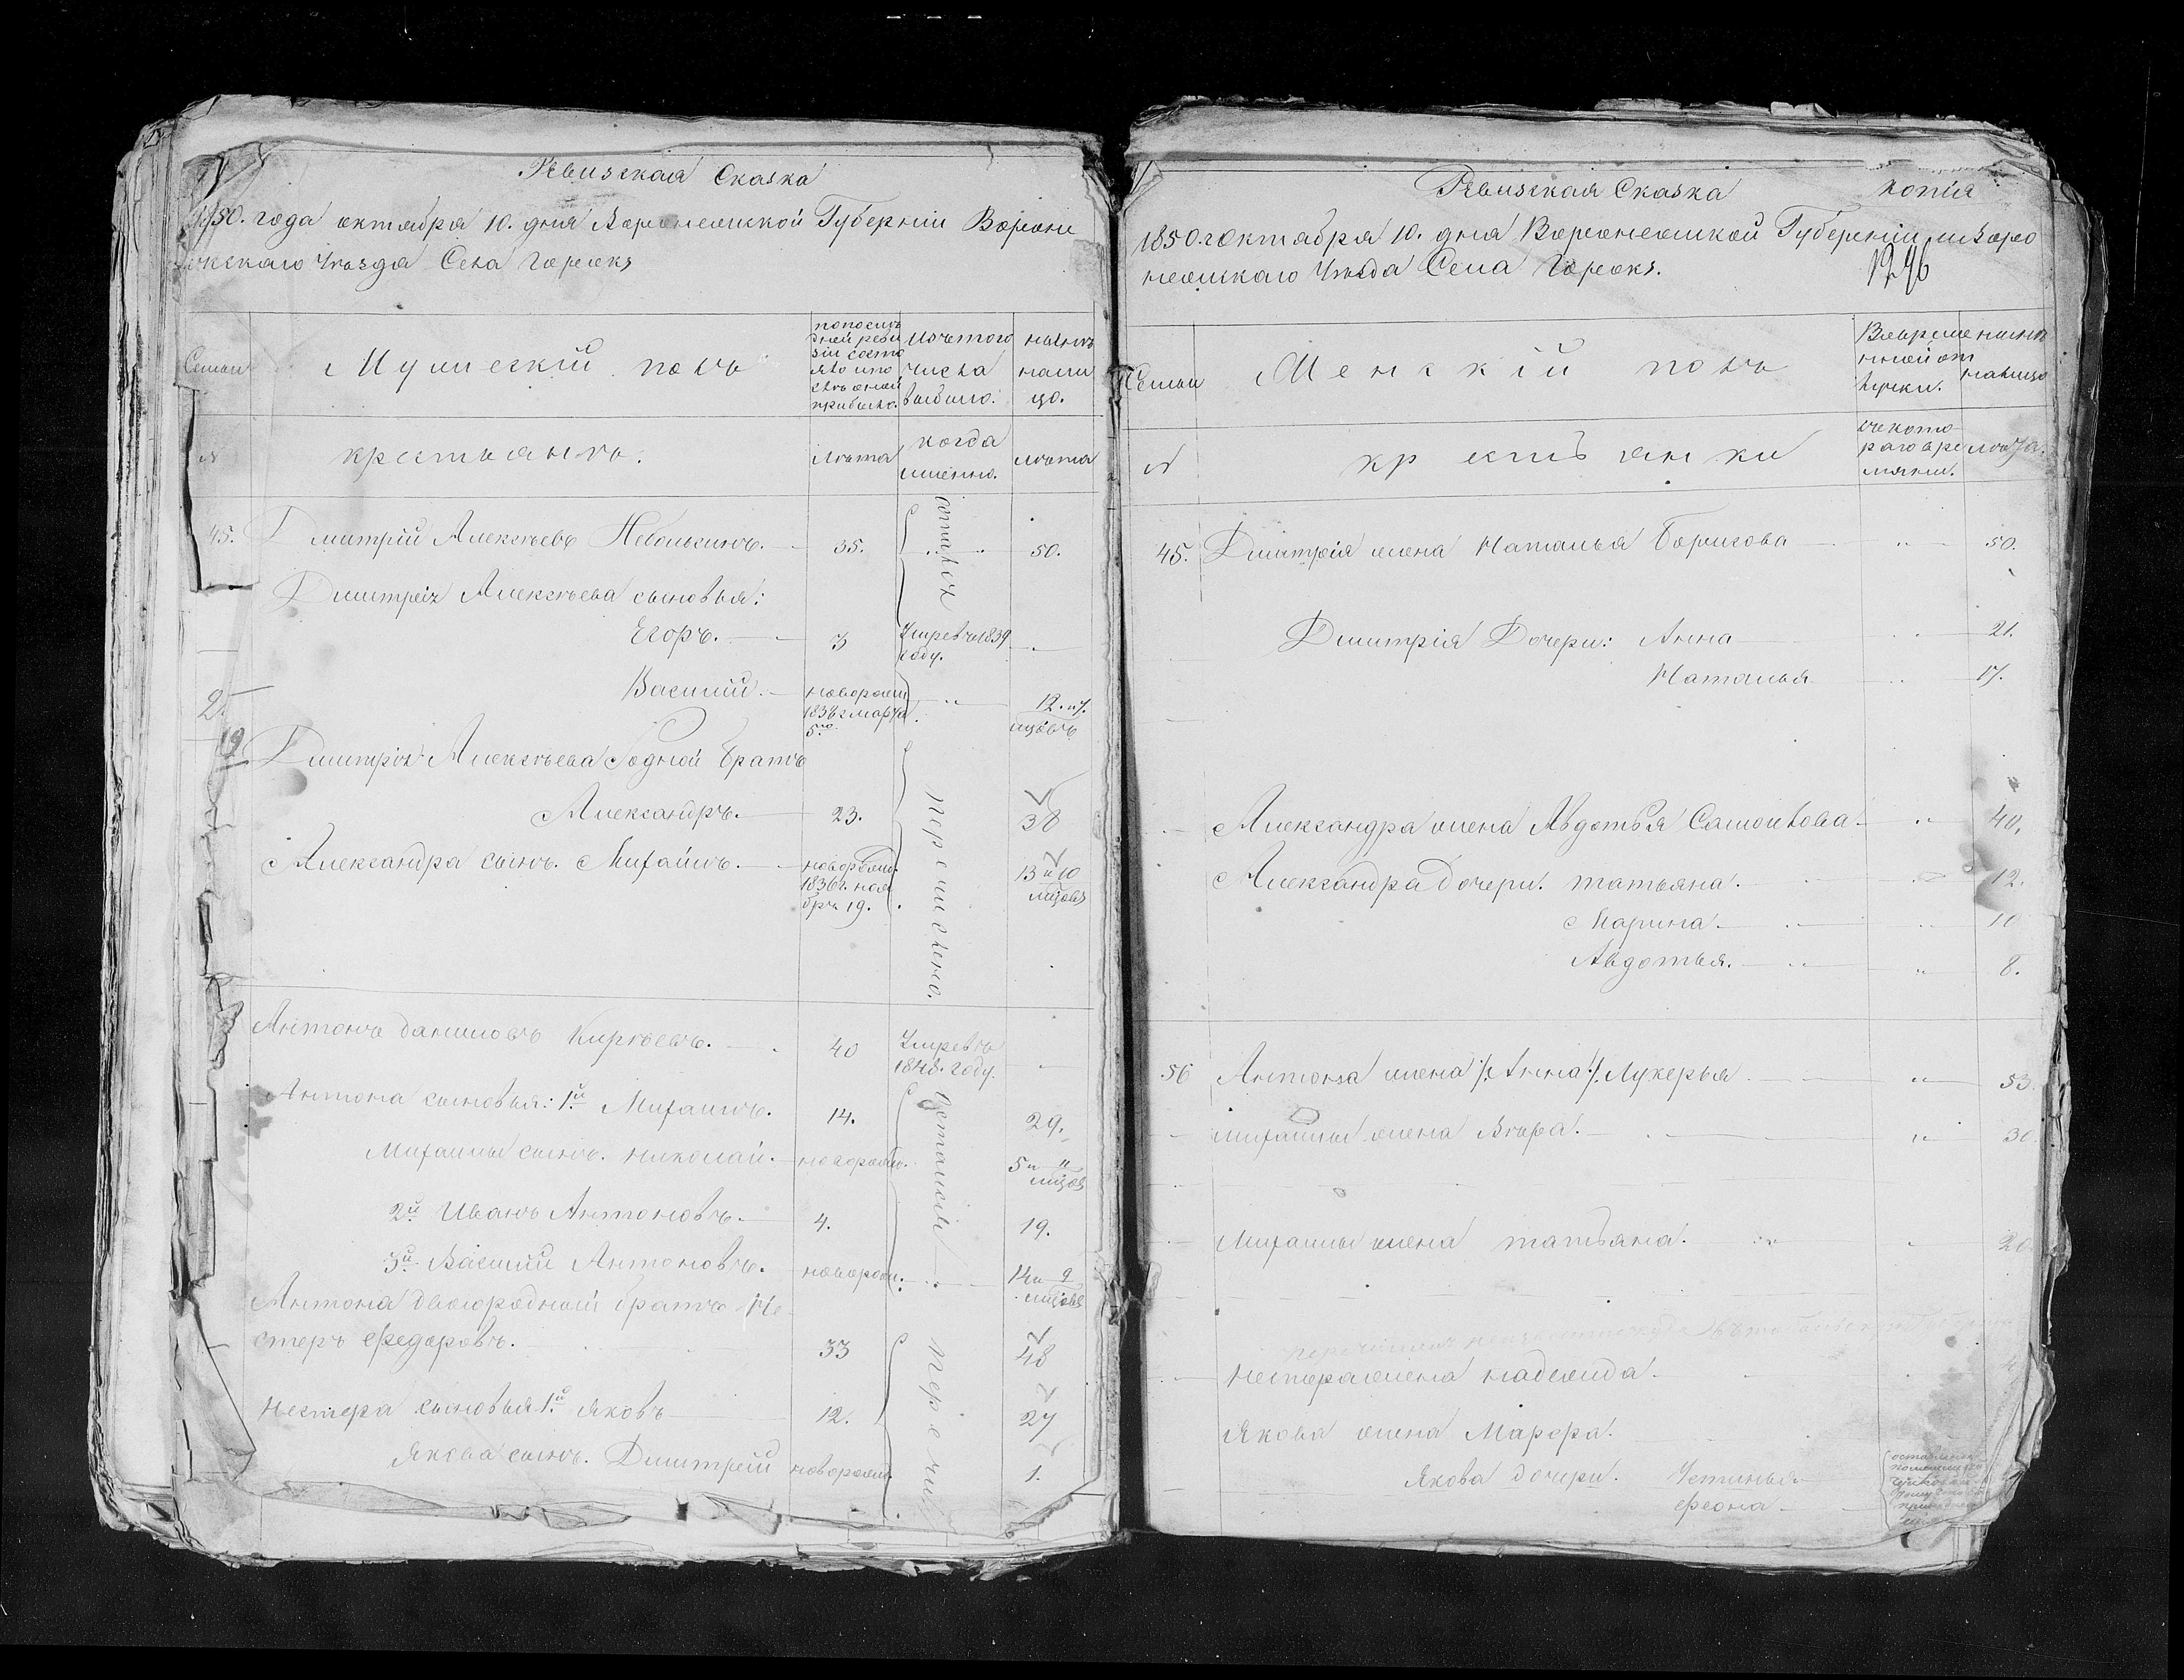 Ревизская Сказка
1850. года октября 10. дня Воронежской Губерніи Вороне
жскаго Уѣзда Села Горокъ
Семьи
Мужескій полъ
по послѣ
дней реви
зіи состо
яло и по
слѣ оной
прибыло.
Изъ того
числа
выбыло.
нынѣ
на ли
цо.
№
крестьянъ.
лѣта
когда
именно.
лѣта
45. Дмитрій Алексѣевъ Небольсинъ. 35. 50.
Дмитрія Алексѣева сыновья:
Егоръ. 3 Умре въ 1839
году.
Василій. новорожд 12. и 7.
1838 г Марта мцовъ
5го
2
19
Дмитрія Алексѣева Родной Братъ
Александръ. 23. 38
Александра сынъ. Михайлъ. новорожд. 13 и 10
1836 г. ноя мцовъ
бря 19.
перечислено.
Антонъ Даниловъ Кирѣевъ. 40 Умре въ
1848. году.
Антона сыновья: 1й Михаилъ. 14. 29.
Михаилы сынъ. Николай. новорожд. 5 и 11
мцов
2й Иванъ Антоновъ. 4. 19.
3й Василий Антоновъ. новорожд. 14 и 9
мцовъ
Антона двоюродный братъ Не
стеръ Федоровъ. 33 48
Нестера сыновья 1й Яковъ 12. 27
Якова сынъ. Дмитрей новорожд. 1.
Перечи
Ревизская Сказка копія
1850 г октября 10. дня Воронежской Губерніи и Воро
нежскаго Уѣзда Села Горокъ.
1246
Семьи
Женскій полъ
Во време
нной от
лучки.
нынѣ
налицо
№
крестьянки
съ кото
раго вре
мяни.
лѣта.
45. Дмитрія жена Наталья Борисова 50.
Дмитрія Дочери: Анна 21.
Наталья 17.
Александра жена Авдотья Самойлова 40.
Александра дочери. Татьяна. 12.
Марина. 10
Авдотья. 8.
56 Антона жена /: Анна :/ Лукерья 53.
Михаилы жена Вѣра. 30.
Михаилы жена Татьяна. 20
Нестера жена Надежда.
Якова жена Марфа.
Якова дочери. Устинья
Феона